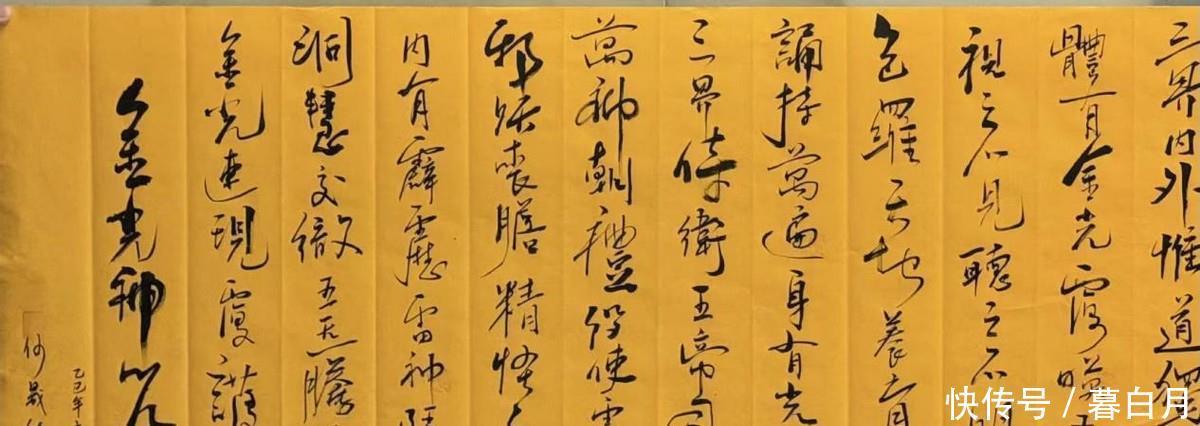 三界内外惟道獨
體有金光覆暎
視之不見聽之不
包羅天地養育
誦持萬遍身有光
三界侍衛五帝司
萬神朝禮役使雷
邪妖喪膽精怪
内有霹靂雷神
洞慧交徹五炁騰
金光速現覆護
金光神咒
乙巳年
快传号 / 暮白月